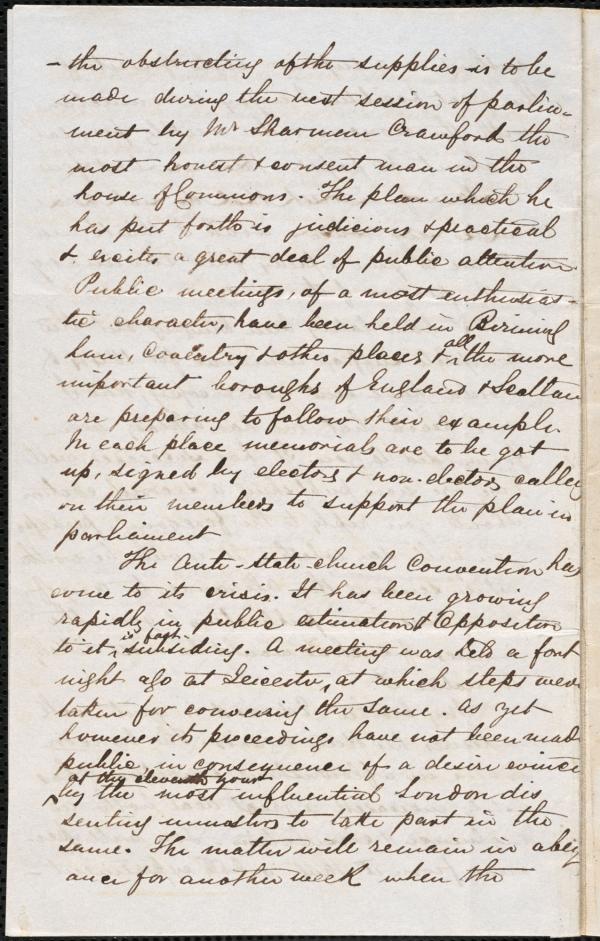 - the obstructing of the supplies - is to be
made during the next session of parlia-
ment by Mr Sharman Crawford the
most honest & consent man in the
house of Commons. The plan which he
has put forth is judicious & practical
& excites a great deal of public attention
Public meetings, of a most enthusias-
tic character, have been held in Birming
ham, Coventry & other places & all the more
important boroughs of England & Scotlan
are preparing to follow their example.
In each place memorials are to be got
up, signed by electors & non-electors calling
on their members to support the plan in
parliament
The Anti-state-church Convention has
come to its crisis. It has been growing
rapidly in public estimation & Opposition
to it, is fast subsiding. A meeting was held a fort
night ago at Leicester, at which steps were
taken for convening the same. As yet
however its proceedings have not been made
public, in consequence of a desire evinced
at the eleventh hour
by the most influential London dis
senting ministers to take part in the
same. The matter will remain in abey
ance for another week when the